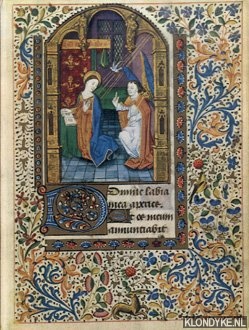 Domine labia
mea aperies.
Et os meum
annunciabit
KLONDYKE.NL